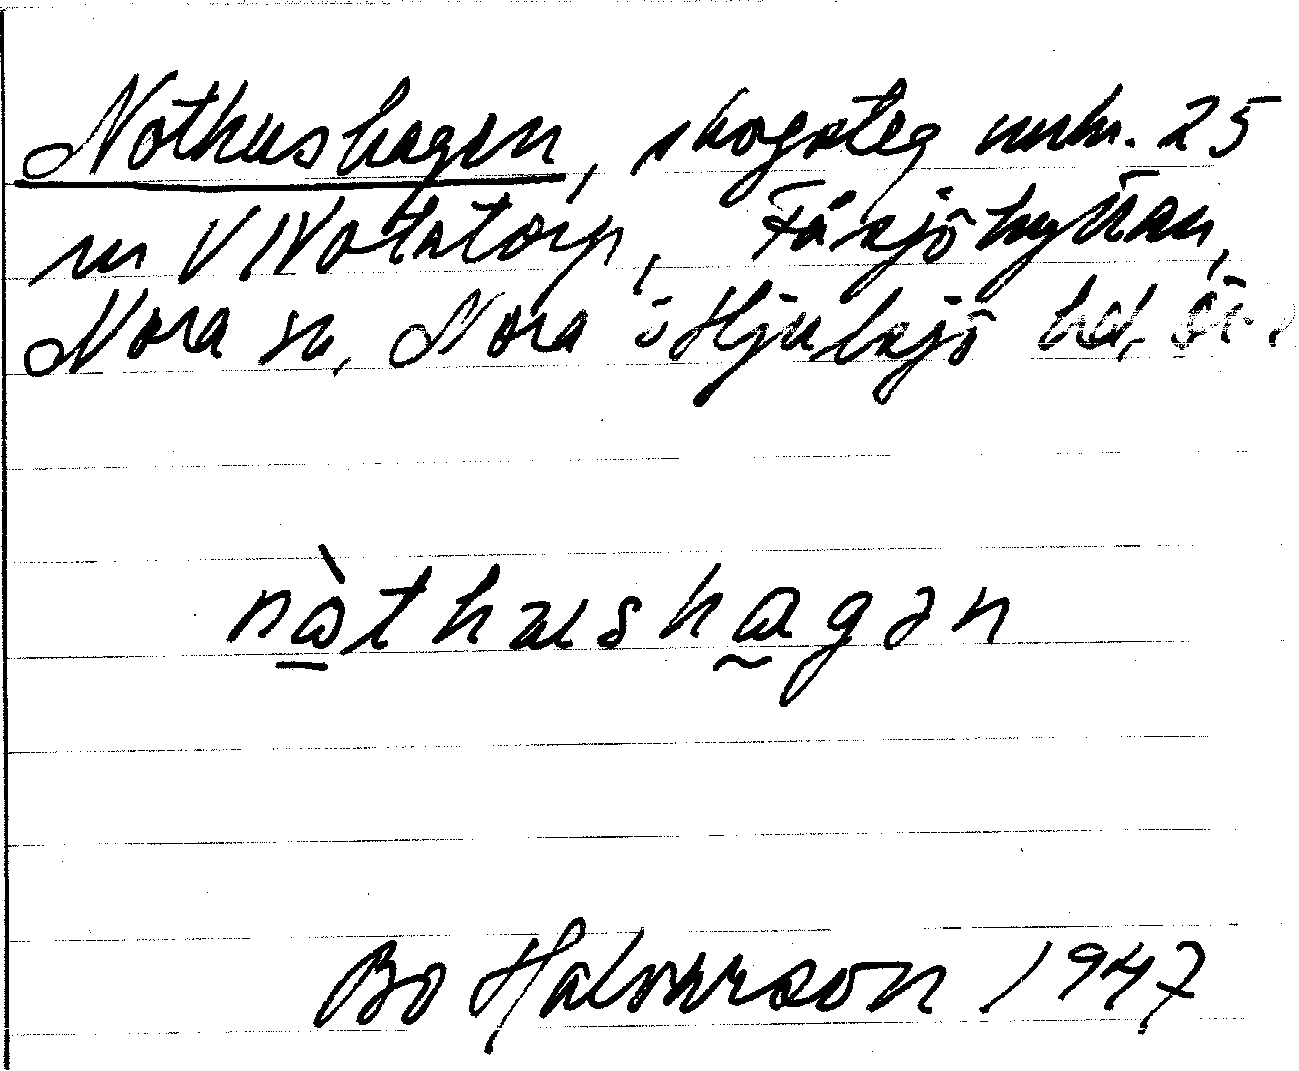 Nothushagen, skogsteg nmkr. 25
m V Notatorp, Fåsjöhyttan,
Nora sn, Nora o Hjulsjö hd, Ör.
nàthushagən
Bo Halvarson 1947